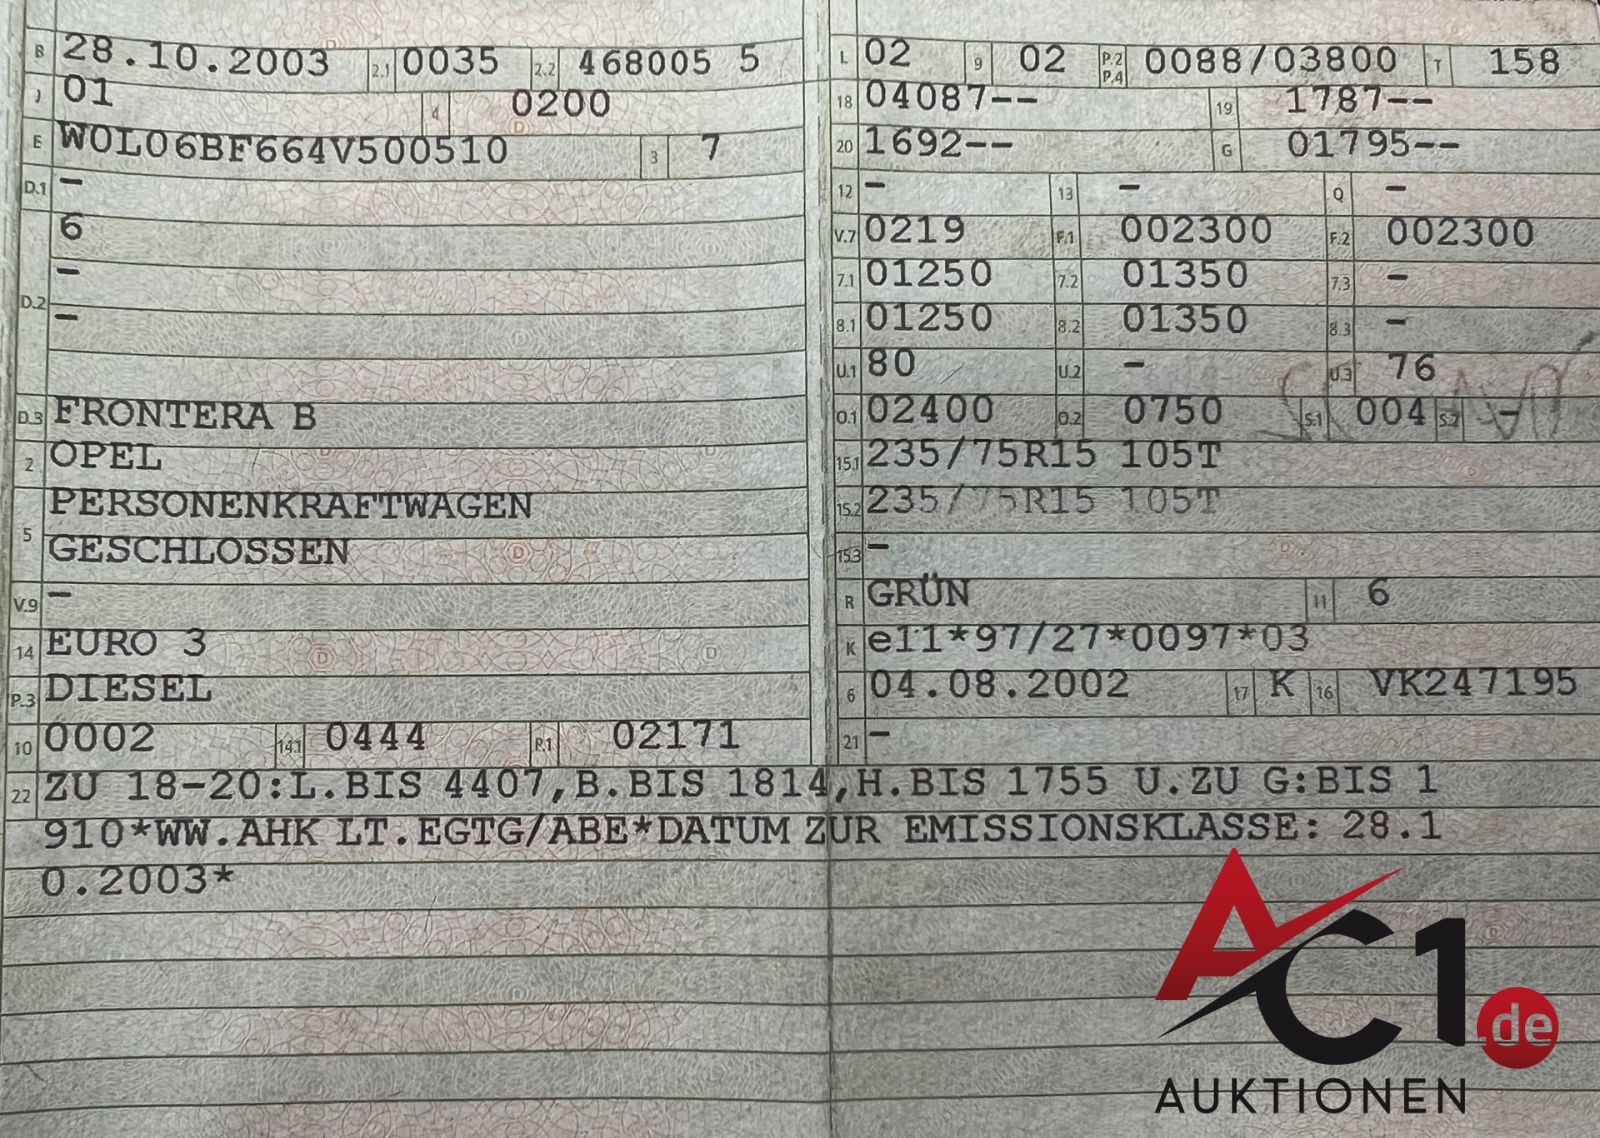 B 28.10.2003 2.1 0035 2.2 468005 5
J 01 4 0200
E W0L06BF664V500510 3 7
D.1 -
6
-
D.2 -
D.3 FRONTERA B
2 OPEL
PERSONENKRAFTWAGEN
5 GESCHLOSSEN
V.9 -
14 EURO 3
P.3 DIESEL
10 0002 14.1 0444 P.1 02171
L 02 9 02 P.2 P.4 0088/03800 T 158
18 04087-- 19 1787--
20 1692-- G 01795--
12 - 13 - Q -
V.7 0219 F.1 002300 F.2 002300
7.1 01250 7.2 01350 7.3 -
8.1 01250 8.2 01350 8.3 -
U.1 80 U.2 - U.3 76
O.1 02400 O.2 0750 S.1 004 S.2 -
15.1 235/75R15 105T
15.2 235/75R15 105T
15.3 -
R GRÜN 11 6
K e11*97/27*0097*03
6 04.08.2002 17 K 16 VK247195
21 -
22 ZU 18-20:L.BIS 4407,B.BIS 1814,H.BIS 1755 U.ZU G:BIS 1
910*WW.AHK LT.EGTG/ABE*DATUM ZUR EMISSIONSKLASSE: 28.1
0.2003*
AC1.de
AUKTIONEN